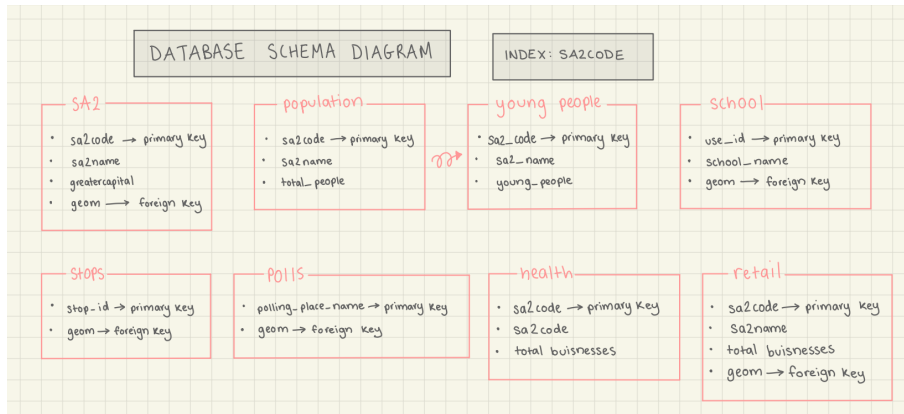 DATABASE SCHEMA DIAGRAM
INDEX: SA2CODE
SA2
• sa2code → primary key
• sa2name
• greatercapital
• geom → foreign key
population
• sa2code → primary key
• sa2name
• total_people
young people
• sa2_code → primary key
• sa2_name
• young_people
school
• use_id → primary key
• school_name
• geom → foreign key
stops
• stop_id → primary key
• geom → foreign key
polls
• polling_place_name → primary key
• geom → foreign key
health
• sa2code → primary key
• sa2code
• total buisnesses
retail
• sa2code → primary key
• sa2name
• total buisnesses
• geom → foreign key